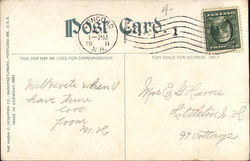 Post Card.
CONCORD
1-PM
N.H.
4-
1
THIS SIDE MAY BE USED FOR CORRESPONDENCE
THIS SPACE FOR ADDRESS ONLY.
THE HUGH C. LEIGHTON CO., MANUFACTURERS, PORTLAND, ME. U.S.A.
MADE IN GERMANY
Will write when I
have time
Love
from
M.H
Mrs
Cottage